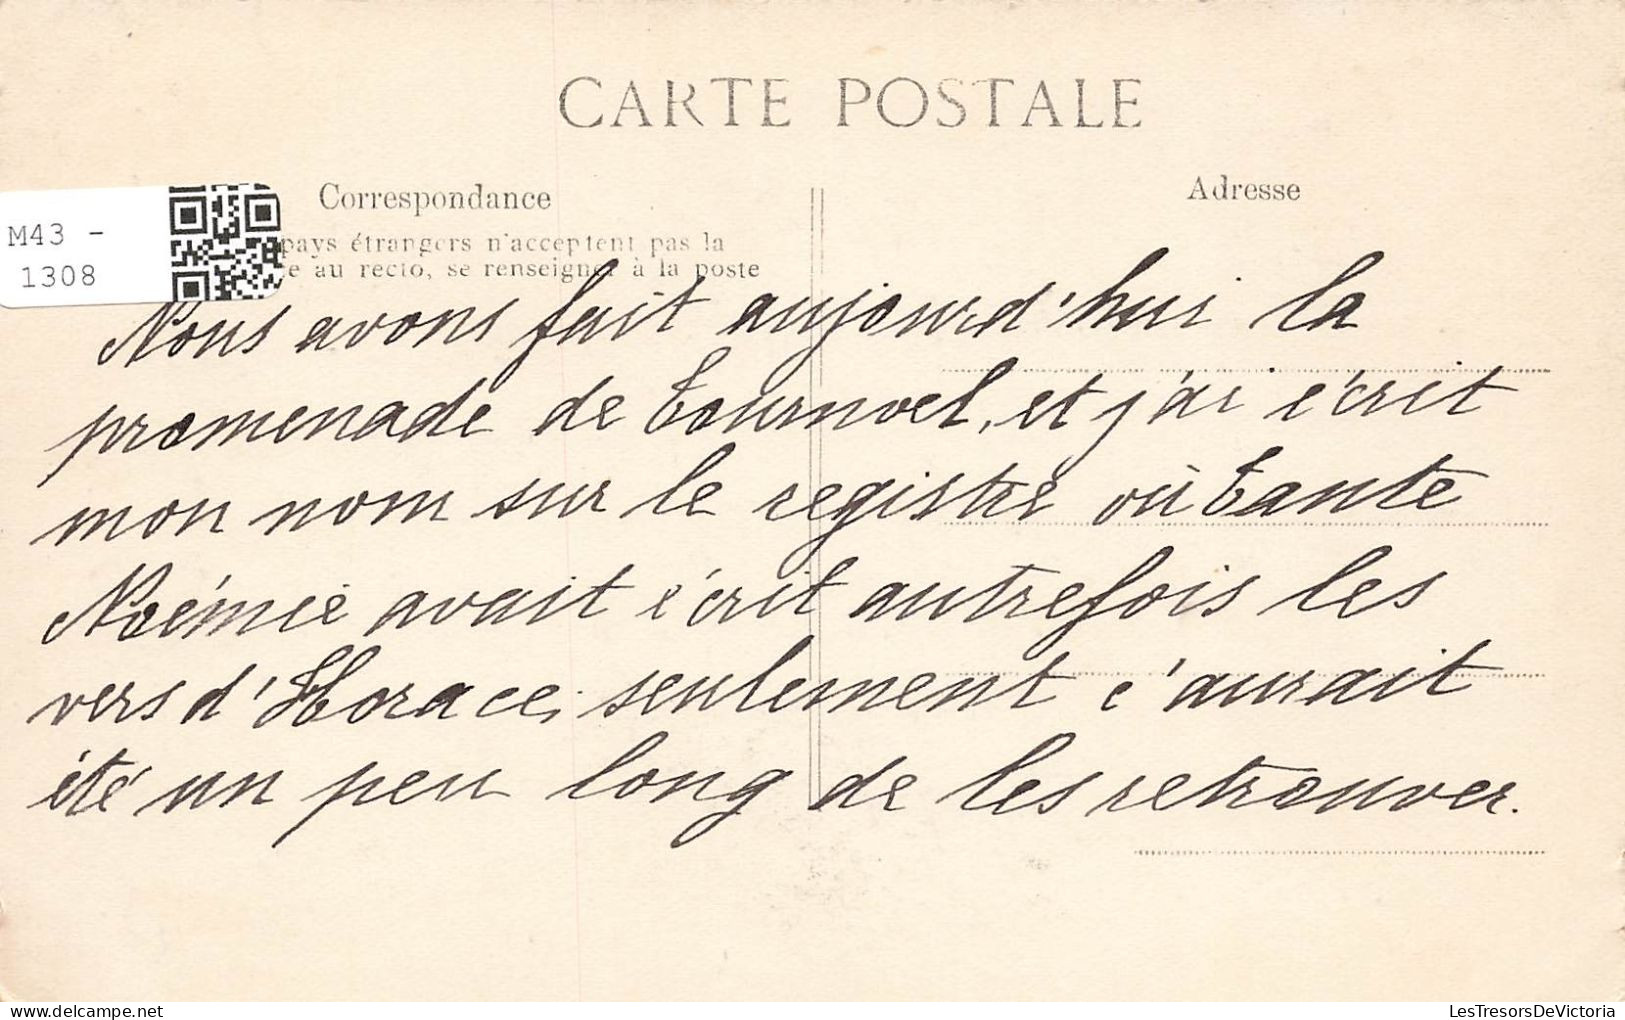 CARTE POSTALE
Correspondance
Adresse
M43 -
1308
pays étrangers n'acceptent pas la
e au recto, se renseigner à la poste
Nous avons fait aujourd'hui la
promenade de Tournoel, et j'ai écrit
mon nom sur le registre où Tante
Noémie avait écrit autrefois les
vers d'Horace, seulement c'aurait
été un peu long de les retrouver.
LesTresorsDeVictoria